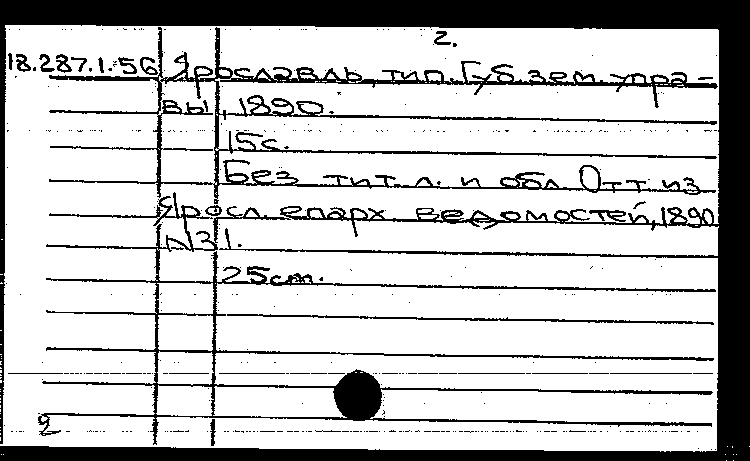 2.
18.287.1.56 Ярославль, тип. Губ. зем. упра-
вы, 1890.
15с.
Без тит. л. и обл. Отт из
Яросл. епарх. ведомостей, 1890
№31.
25cm.
2